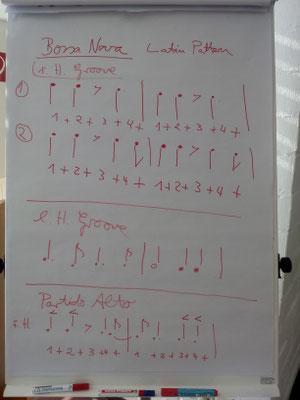 Bossa Nova Latin Pattern
r. H. Groove
①
1 + 2 + 3 + 4 + 1 + 2 + 3 + 4 +
②
1 + 2 + 3 + 4 + 1 + 2 + 3 + 4 +
l. H. Groove
Partido Alto
r. H.
1 + 2 + 3 + 4 + 1 + 2 + 3 + 4 +